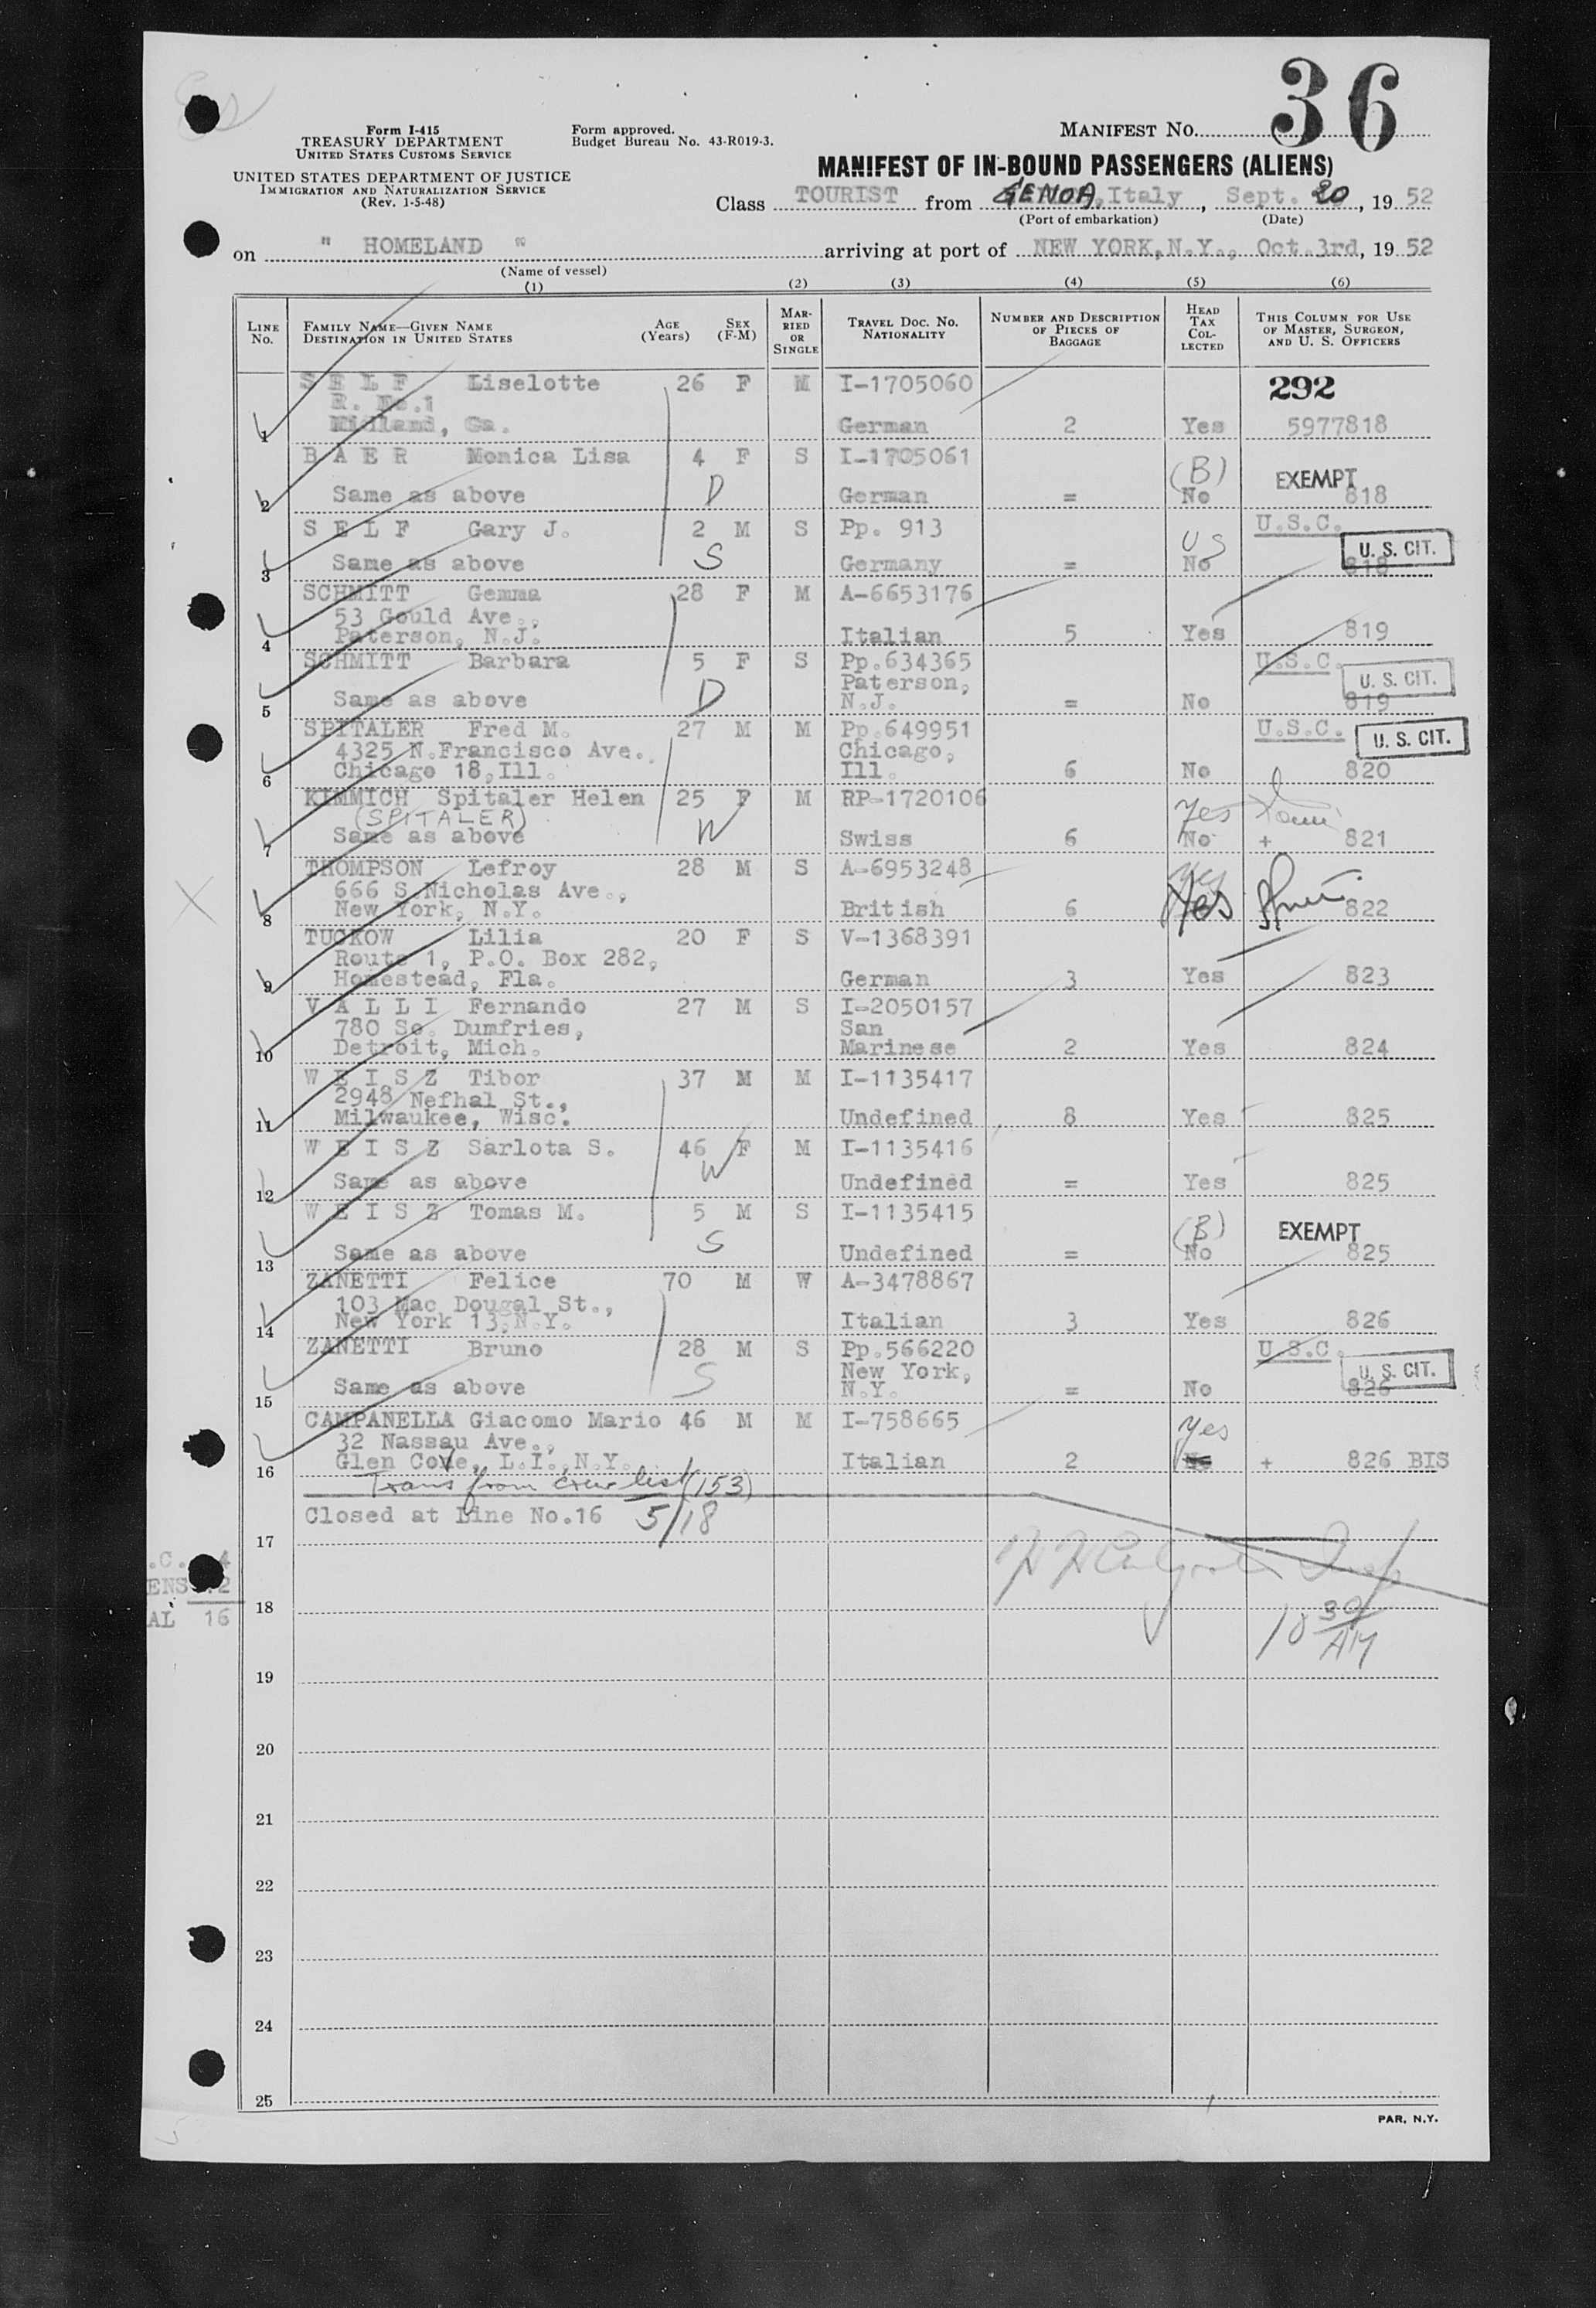 36
Form I-415
TREASURY DEPARTMENT
UNITED STATES CUSTOMS SERVICE
UNITED STATES DEPARTMENT OF JUSTICE
IMMIGRATION AND NATURALIZATION SERVICE
(Rev. 1-5-48)
Form approved.
Budget Bureau No. 43-R019-3.
MANIFEST NO.
MANIFEST OF IN-BOUND PASSENGERS (ALIENS)
Class TOURIST from GENOA, Italy, Sept. 20, 1952
(Port of embarkation) (Date)
on " HOMELAND " arriving at port of NEW YORK, N.Y., Oct.3rd, 1952
(Name of vessel)
(1) (2) (3) (4) (5) (6)
LINE NO. FAMILY NAME—GIVEN NAME DESTINATION IN UNITED STATES AGE (Years) SEX (F-M) MARRIED OR SINGLE TRAVEL DOC. NO. NATIONALITY NUMBER AND DESCRIPTION OF PIECES OF BAGGAGE HEAD TAX COLLECTED THIS COLUMN FOR USE OF MASTER, SURGEON, AND U. S. OFFICERS
S E L F Liselotte 26 F M I-1705060 292
R. No.1
1 Midland, Ga. German 2 Yes 5977818
B A E R Monica Lisa 4 F S I-1705061 (B) EXEMPT
2 Same as above D German = No 818
S E L F Gary J. 2 M S Pp. 913 US U.S.C. U. S. CIT.
3 Same as above S Germany = No 818
SCHMITT Gemma 28 F M A-6653176
53 Gould Ave.,
4 Paterson, N.J. Italian 5 Yes 819
SCHMITT Barbara 5 F S Pp.634365 U.S.C. U. S. CIT.
Paterson,
5 Same as above D N.J. = No 819
SPITALER Fred M. 27 M M Pp.649951 U.S.C. U. S. CIT.
4325 N.Francisco Ave. Chicago,
6 Chicago 18,Ill. Ill. 6 No 820
KIMMICH Spitaler Helen 25 F M RP-1720106 Yes
(SPITALER)
7 Same as above W Swiss 6 No + 821
THOMPSON Lefroy 28 M S A-6953248 Yes
666 S Nicholas Ave.,
8 New York, N.Y. British 6 Yes 822
TUCKOW Lilia 20 F S V-1368391
Route 1, P.O. Box 282,
9 Homestead, Fla. German 3 Yes 823
V A L L I Fernando 27 M S I-2050157
780 So. Dumfries, San
10 Detroit, Mich. Marinese 2 Yes 824
W E I S Z Tibor 37 M M I-1135417
2948 Nefhal St.,
11 Milwaukee, Wisc. Undefined 8 Yes 825
W E I S Z Sarlota S. 46 F M I-1135416
12 Same as above W Undefined = Yes 825
W E I S Z Tomas M. 5 M S I-1135415 (B) EXEMPT
13 Same as above S Undefined = No 825
ZANETTI Felice 70 M W A-3478867
103 Mac Dougal St.,
14 New York 13,N.Y. Italian 3 Yes 826
ZANETTI Bruno 28 M S Pp.566220 U.S.C. U. S. CIT.
New York,
15 Same as above S N.Y. = No 826
CAMPANELLA Giacomo Mario 46 M M I-758665 Yes
32 Nassau Ave.,
16 Glen Cove, L.I.,N.Y. Italian 2 No + 826 BIS
Trans from crew list (153)
Closed at Line No.16 5/18
17
.C. 4
ENS 12
AL 16
18
10 30 AM
19
20
21
22
23
24
25
PAR, N.Y.